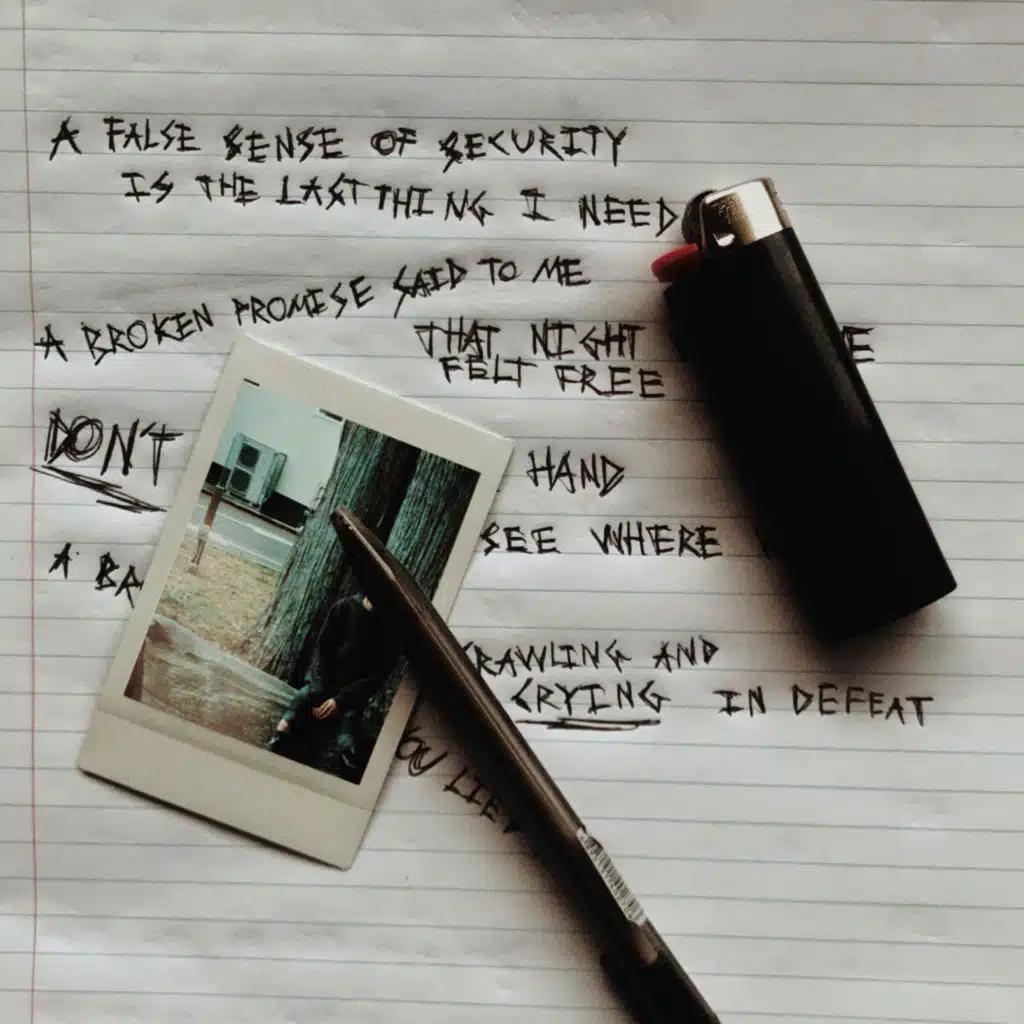 A FALSE SENSE OF SECURITY
IS THE LAST THING I NEED
A BROKEN PROMISE SAID TO ME
THAT NIGHT
FELT FREE
DON'T HAND
SEE WHERE
A
CRAWLING AND
CRYING IN DEFEAT